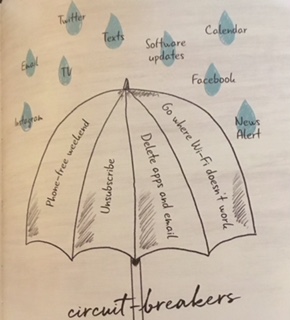 Twitter
Texts
Software
updates
Calendar
Email
TV
Facebook
Instagram
News
Alert
Phone-free weekend
Unsubscribe
Delete apps and email
Go where Wi-Fi doesn't work
circuit-breakers